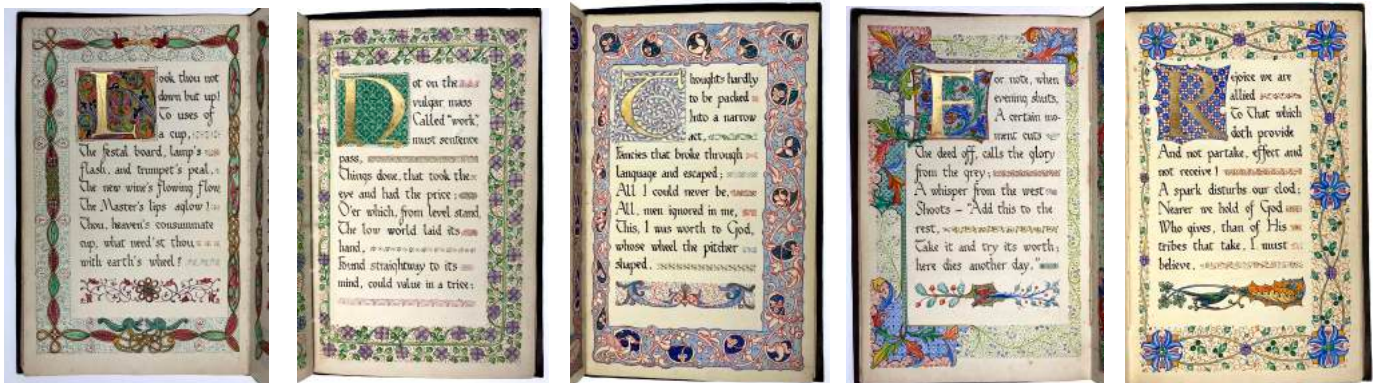 Look thou not
down but up!
To uses of
a cup,
The festal board, lamp's
flash, and trumpet's peal,
The new wine's flowing flow
The Master's lips aglow!
Thou, heaven's consummate
cup, what need'st thou
with earth's wheel?
Not on the
vulgar mass
Called "work,"
must sentence
pass,
Things done, that took the
eye and had the price;
O'er which, from level stand,
The low world laid its
hand,
Found straightway to its
mind, could value in a trice:
Thoughts hardly
to be packed
Into a narrow
act,
Fancies that broke through
language and escaped;
All I could never be,
All, men ignored in me,
This, I was worth to God,
whose wheel the pitcher
shaped.
For note, when
evening shuts,
A certain mo-
ment cuts
The deed off, calls the glory
from the grey;
A whisper from the west
Shoots – "Add this to the
rest,
Take it and try its worth:
here dies another day."
Rejoice we are
allied
To That which
doth provide
And not partake, effect and
not receive!
A spark disturbs our clod;
Nearer we hold of God
Who gives, than of His
tribes that take, I must
believe.